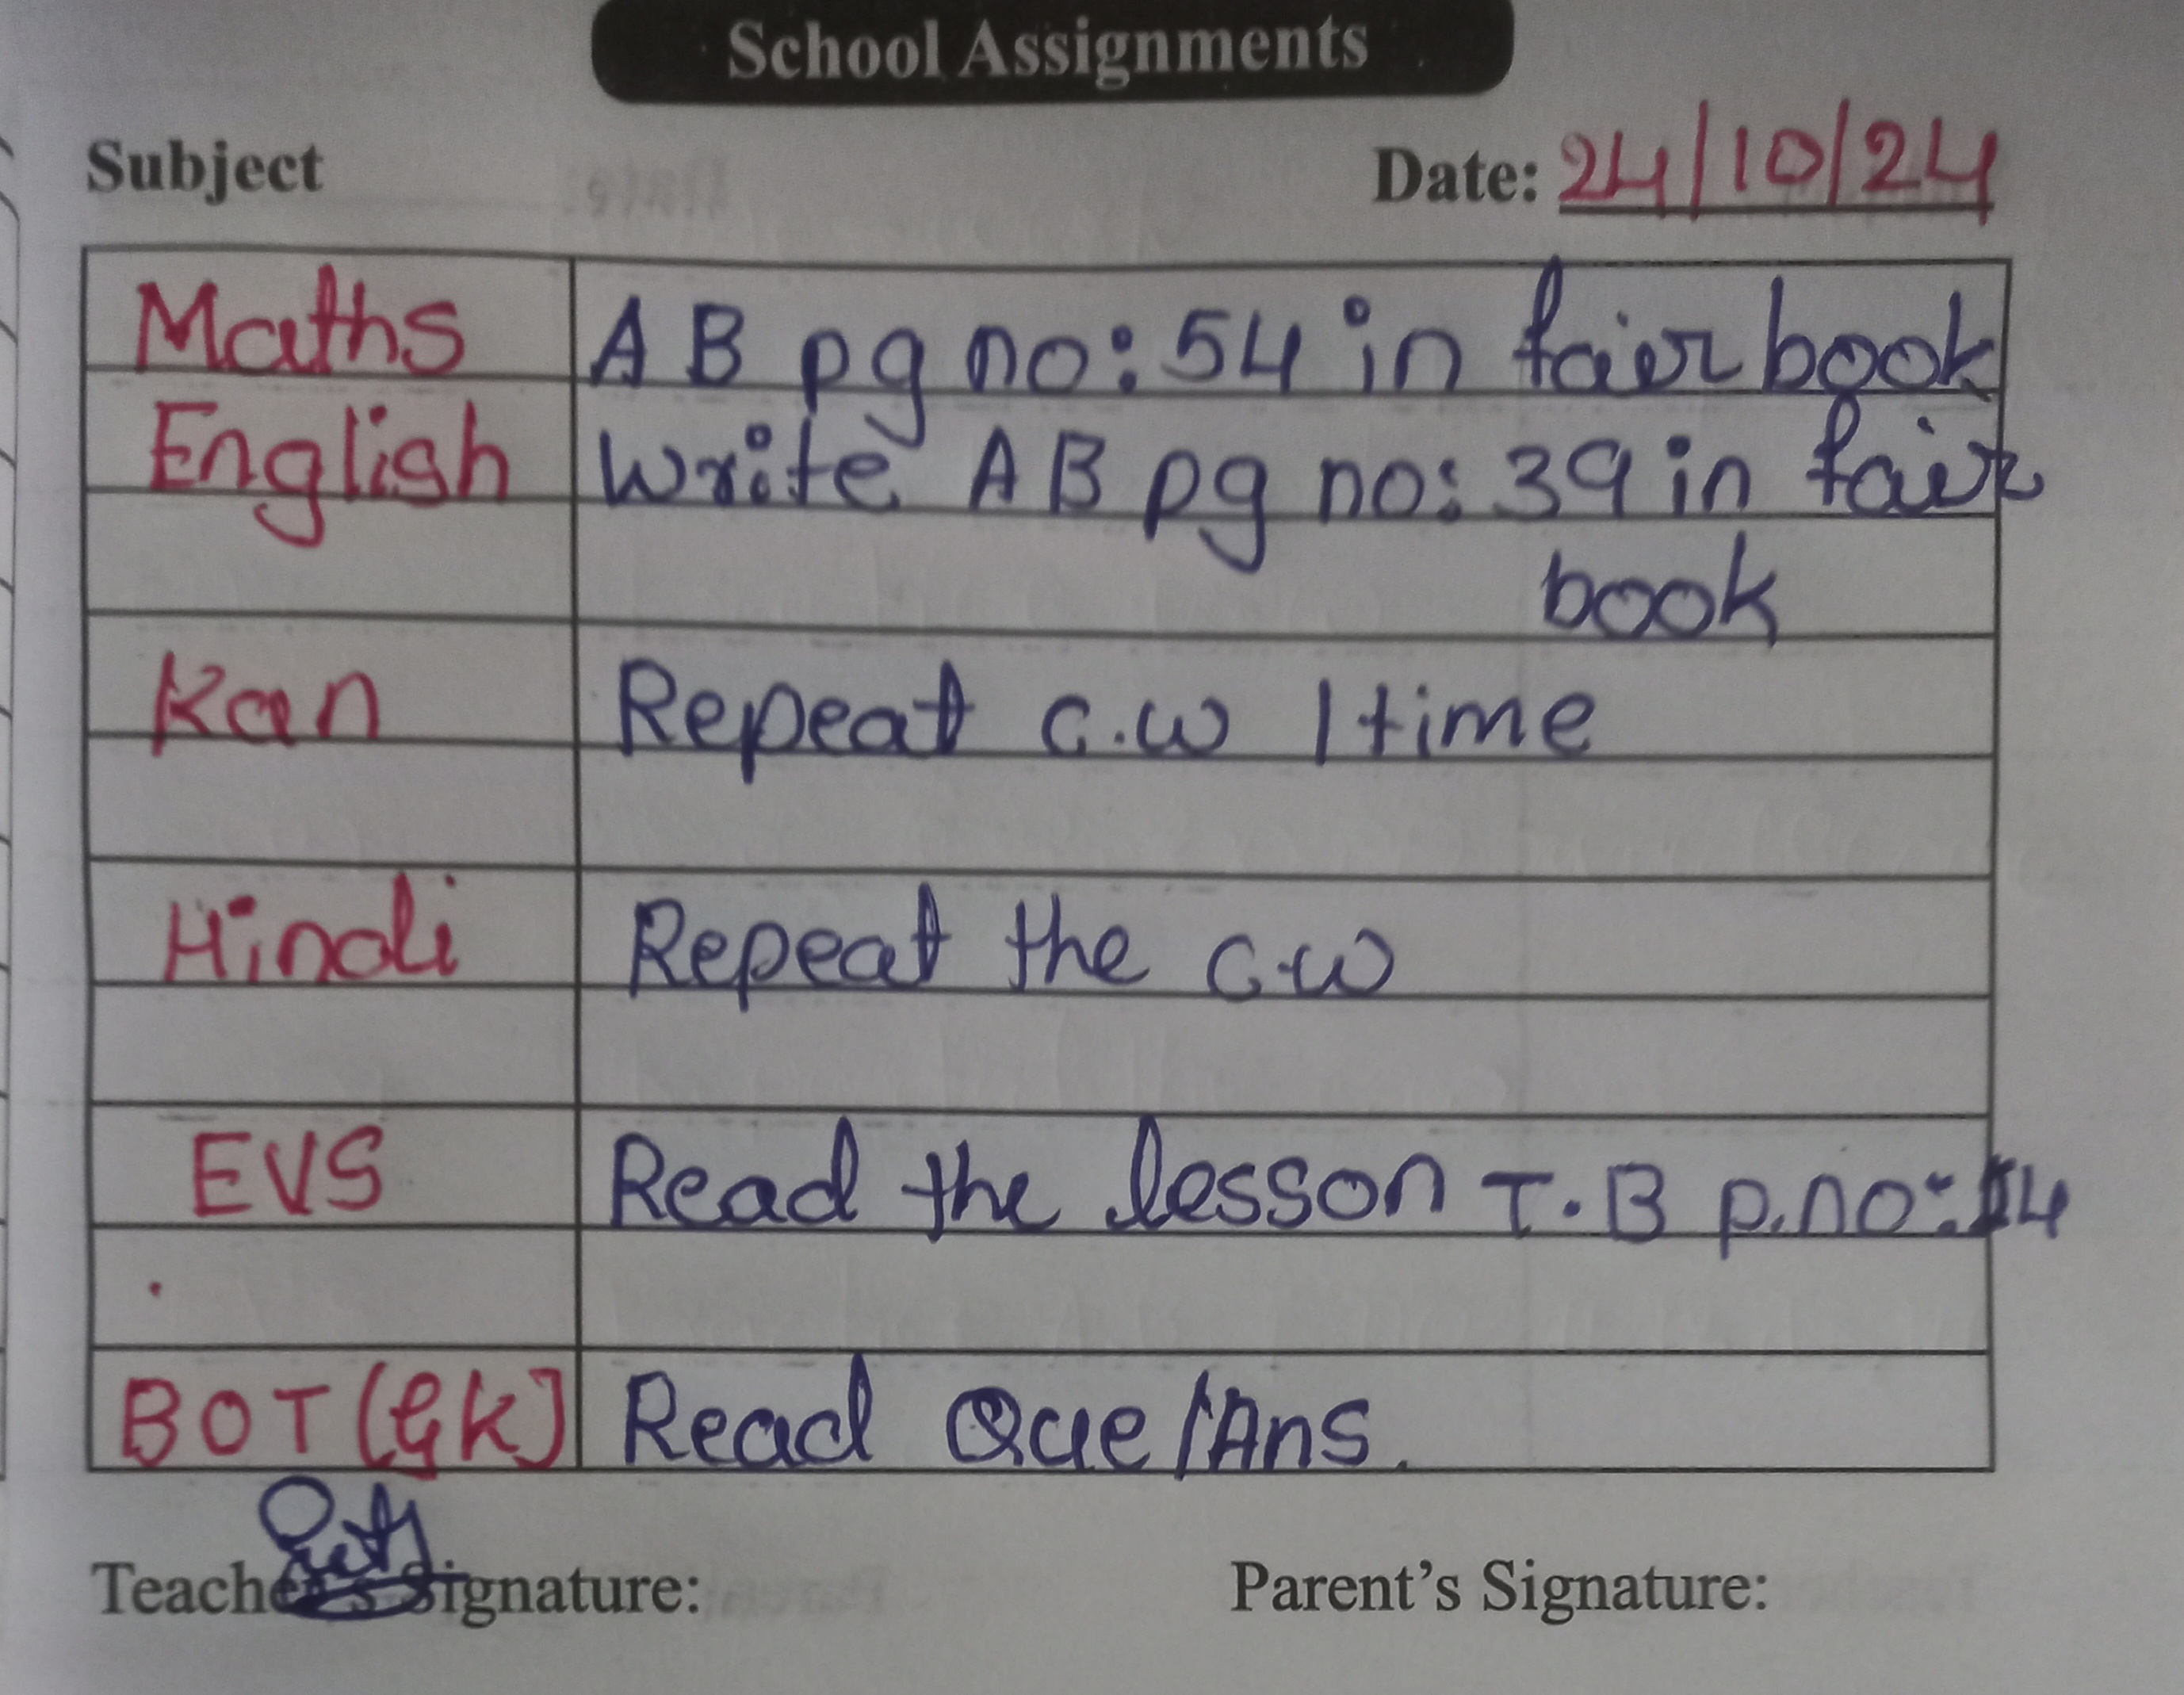 School Assignments
Subject Date: 24/10/24
Maths AB pg no: 54 in fair book
English Write AB pg no: 39 in fair
book
Kan Repeat c.w 1 time
Hindi Repeat the c.w
EVS Read the lesson T.B p.no:
BOT (GK) Read Que/Ans.
Teacher's Signature: Parent's Signature: